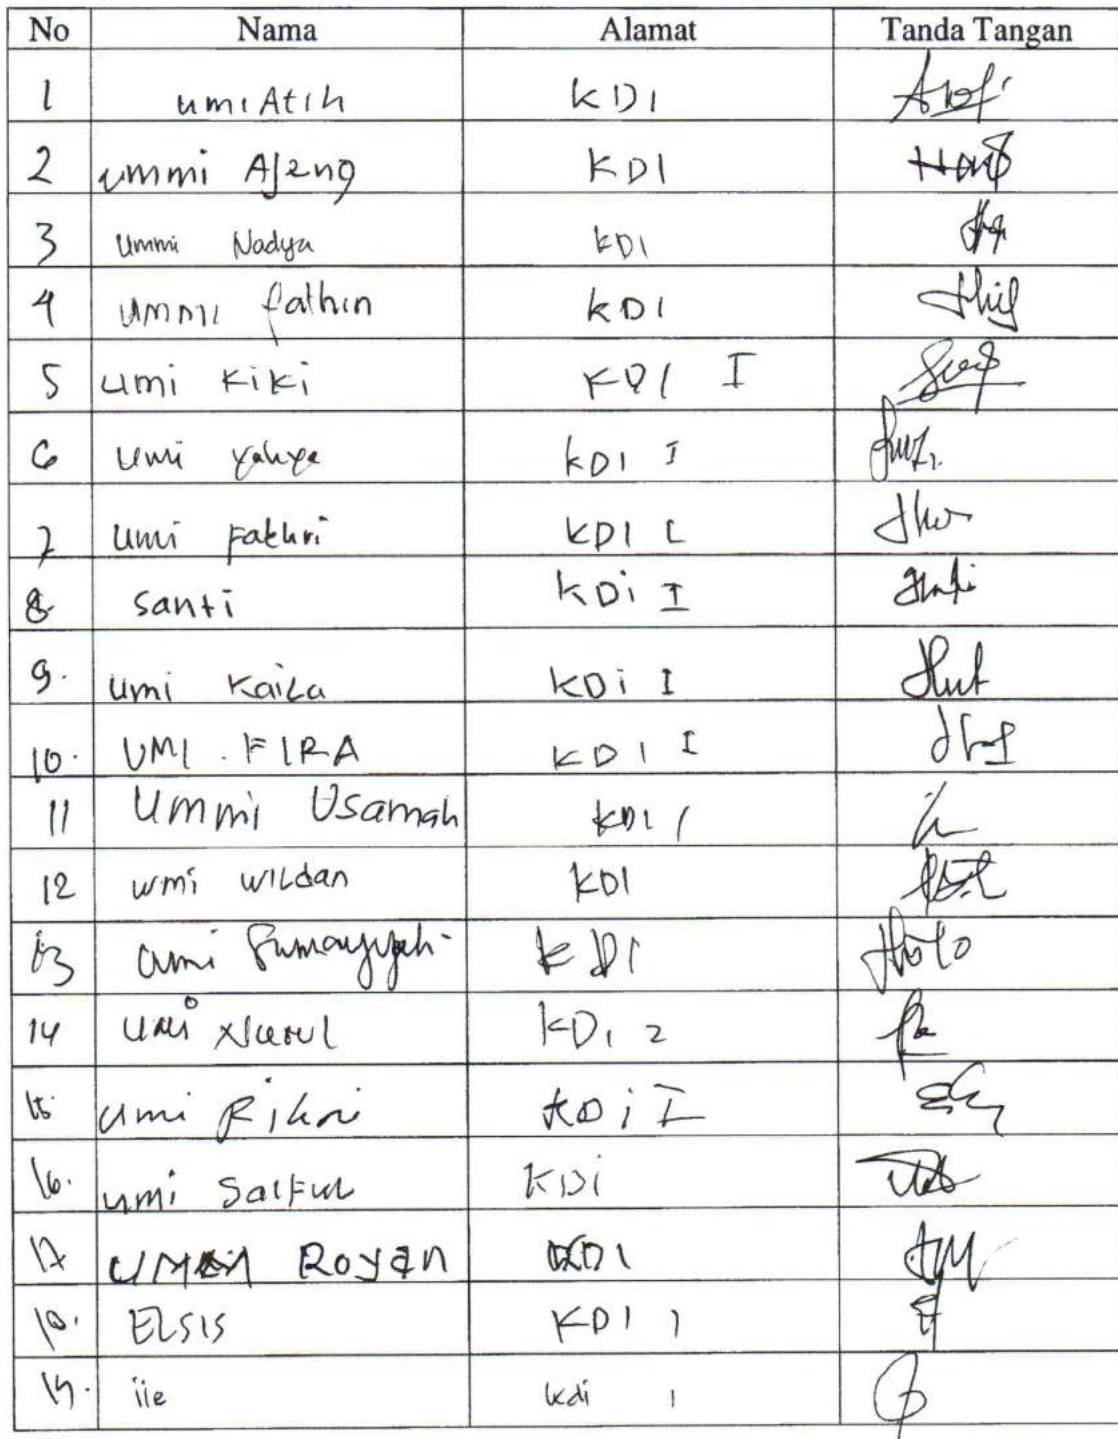 No Nama Alamat Tanda Tangan
1 umi Atih KDI
2 ummi Ajeng KDI
3 ummi Nadya KDI
4 ummi fathin KDI
5 umi kiki KDI I
6 umi yahya KDI I
7 umi Fathri KDI I
8 santi KDi I
9. umi Kaila KDi I
10. UMI . FIRA KDI I
11 Ummi Usamah KDI I
12 umi wildan KDI
13 umi Sumayyah KDI
14 umi Nurul KDi 2
15 umi KDi I
16. umi Saiful KDi
17 Royan KDI
18. ELSIS KDI 1
19. iie kdi 1